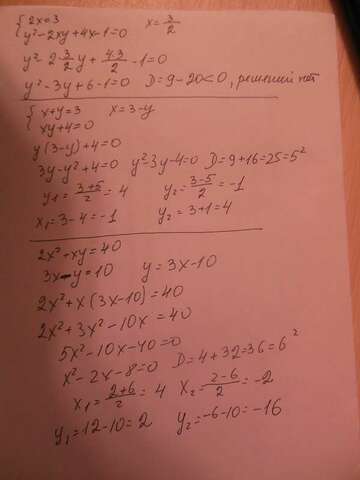 {2x=3 x=3/2
y²-2xy+4x-1=0
y²-2·3/2y+4·3/2-1=0
y²-3y+6-1=0 D=9-20<0, решений нет
{x+y=3 x=3-y
xy+4=0
y(3-y)+4=0
3y-y²+4=0 y²-3y-4=0 D=9+16=25=5²
y₁=(3+5)/2=4 y₂=(3-5)/2=-1
x₁=3-4=-1 y₂=3+1=4
2x²+xy=40
3x-y=10 y=3x-10
2x²+x(3x-10)=40
2x²+3x²-10x=40
5x²-10x-40=0
x²-2x-8=0 D=4+32=36=6²
x₁=(2+6)/2=4 x₂=(2-6)/2=-2
y₁=12-10=2 y₂=-6-10=-16